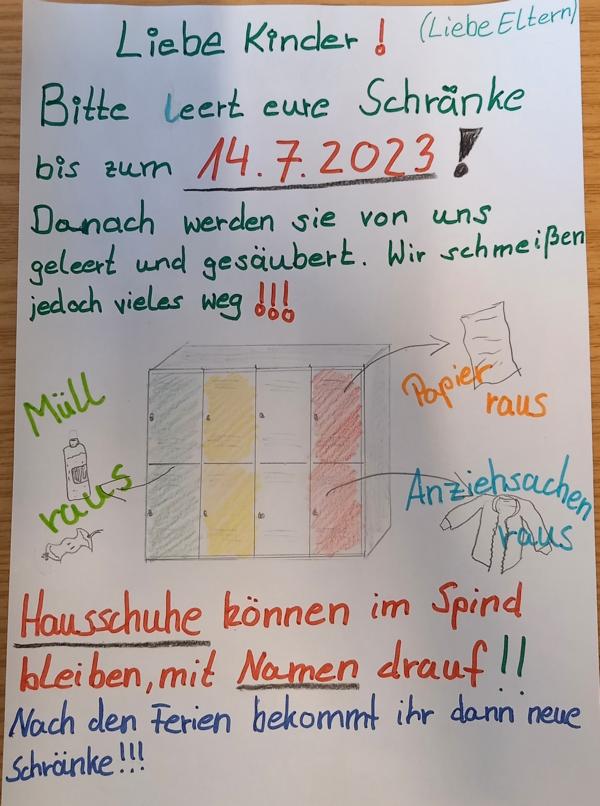 Liebe Kinder! (Liebe Eltern)
Bitte leert eure Schränke
bis zum 14.7.2023!
Danach werden sie von uns
geleert und gesäubert. Wir schmeißen
jedoch vieles weg!!!
Müll
raus
Papier
raus
Anziehsachen
raus
Hausschuhe können im Spind
bleiben, mit Namen drauf!!
Nach den Ferien bekommt ihr dann neue
Schränke!!!